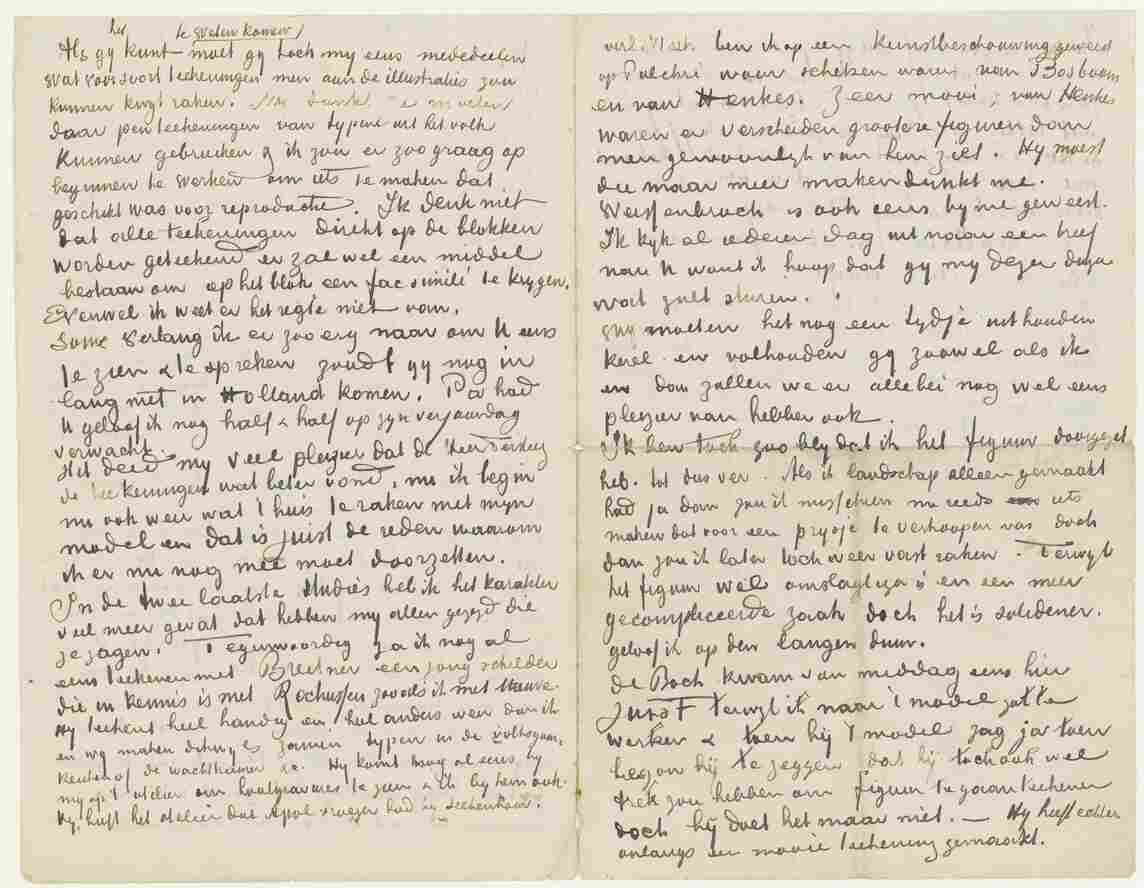 het te weten komen/
Als gy kunt moet gy toch my eens mededeelen
wat voor soort teekeningen men aan de illustraties zou
kunnen kwyt raken. Me dunkt ze moeten
daar penteekeningen van typen uit het volk
kunnen gebruiken & ik zou er zoo graag op
beginnen te werken om iets te maken dat
geschikt was voor reproductie. Ik denk niet
dat alle teekeningen direkt op de blokken
worden geteekend er zal wel een middel
bestaan om op het blok een facsimilé te krygen.
Evenwel ik weet er het regte niet van.
Soms verlang ik er zoo erg naar om U eens
te zien & te spreken zoudt gy nog in
lang niet in Holland komen. Pa had
U geloof ik nog half & half op zyn verjaardag
verwacht.
Het deed my veel plezier dat de heer Tersteeg
de teekeningen wat beter vond, nu ik begin
nu ook weer wat t'huis te raken met myn
model en dat is juist de reden waarom
ik er nu nog mee moet doorzetten.
In de twee laatste studies heb ik het karakter
veel meer gevat dat hebben my allen gezegd die
ze zagen. Tegenwoordig ga ik nog al
eens teekenen met Breitner een jong schilder
die in kennis is met Rochussen zooals ik met Mauve.
Hy teekent heel handig en heel anders weer dan ik
en wy maken dikwyls zamen typen in de volksgaar-
keuken of de wachtkamer &c. Hy komt nog al eens by
my op 't atelier om houtgravures te zien & ik by hem ook.
Hy heeft het atelier dat Apol vroeger had by Siebenhaar.
verl. week ben ik op een Kunstbeschouwing geweest
op Pulchri waar schetsen waren van Bosboom
en van Henkes. Zeer mooi; van Henkes
waren er verscheiden grootere figuren dan
men gewoonlyk van hem ziet. Hy moest
die maar meer maken dunkt me.
Weissenbruch is ook eens by me geweest.
Ik kyk al iederen dag uit naar een brief
van U want ik hoop dat gy my dezer dagen
wat zult sturen.
Wy moeten het nog een tydje uithouden
kerel en volhouden gy zoowel als ik
en dan zullen we er allebei nog wel eens
plezier van hebben ook.
Ik ben toch zoo bly dat ik het figuur doorgezet
heb. tot dus ver. Als ik landschap alleen gemaakt
had ja dan zou ik misschien nu reeds iets
maken dat voor een prysje te verkoopen was doch
dan zou ik later toch weer vast raken. Terwyl
het figuur wel omslagtiger is en een meer
gecompliceerde zaak doch het is solidener.
geloof ik op den langen duur.
de Bock kwam van middag eens hier
juist terwyl ik naar 't model zat te
werken & toen hij 't model zag ja toen
begon hij te zeggen dat hij toch ook wel
trek zou hebben om figuur te gaan teekenen
doch hij doet het maar niet. — Hy heeft echter
onlangs een mooie teekening gemaakt.